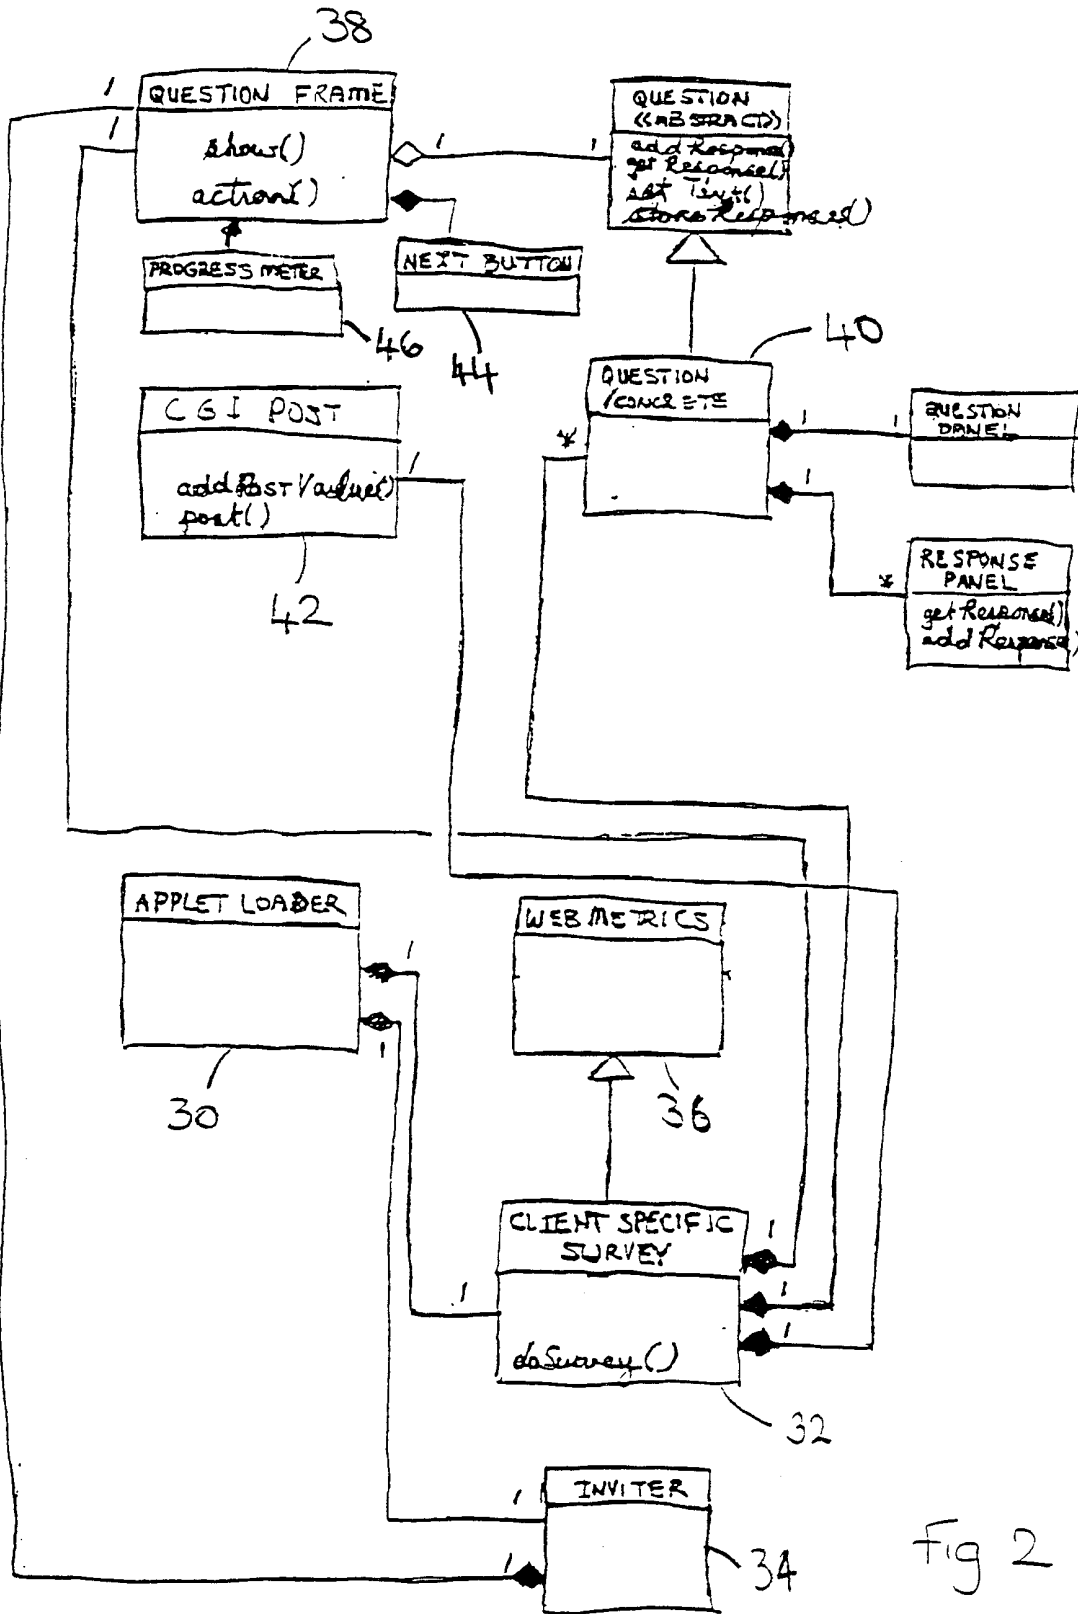 38
1
QUESTION FRAME
1
show()
action()
1
1
QUESTION
<<ABSTRACT>>
add Response()
get Response()
set Text()
store Responses()
PROGRESS METER
46
NEXT BUTTON
44
40
QUESTION
/CONCRETE
*
1
1
QUESTION
PANEL
1
*
RESPONSE
PANEL
get Response()
add Response()
CGI POST
1
add Post Value()
post()
42
APPLET LOADER
1
1
30
WEB METRICS
36
CLIENT SPECIFIC
SURVEY
1
1
1
1
doSurvey()
32
1
1
INVITER
1
34
Fig 2